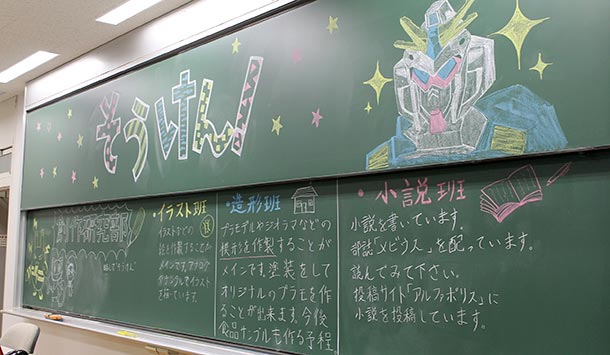 そうけん
創作研究部
・イラスト班
イラストなどの
絵を作製することが
メインです。アナログ
・造形班
プラモデルやジオラマなどの
模形を作製することが
メインです。塗装をして
オリジナルのプラモを作
ることが出来ます。今後
食品サンプルも作る予程
・小説班
小説を書いています。
部誌「メビウス」を配っています。
読んでみて下さい。
投稿サイト「アルファポリス」に
小説を投稿しています。